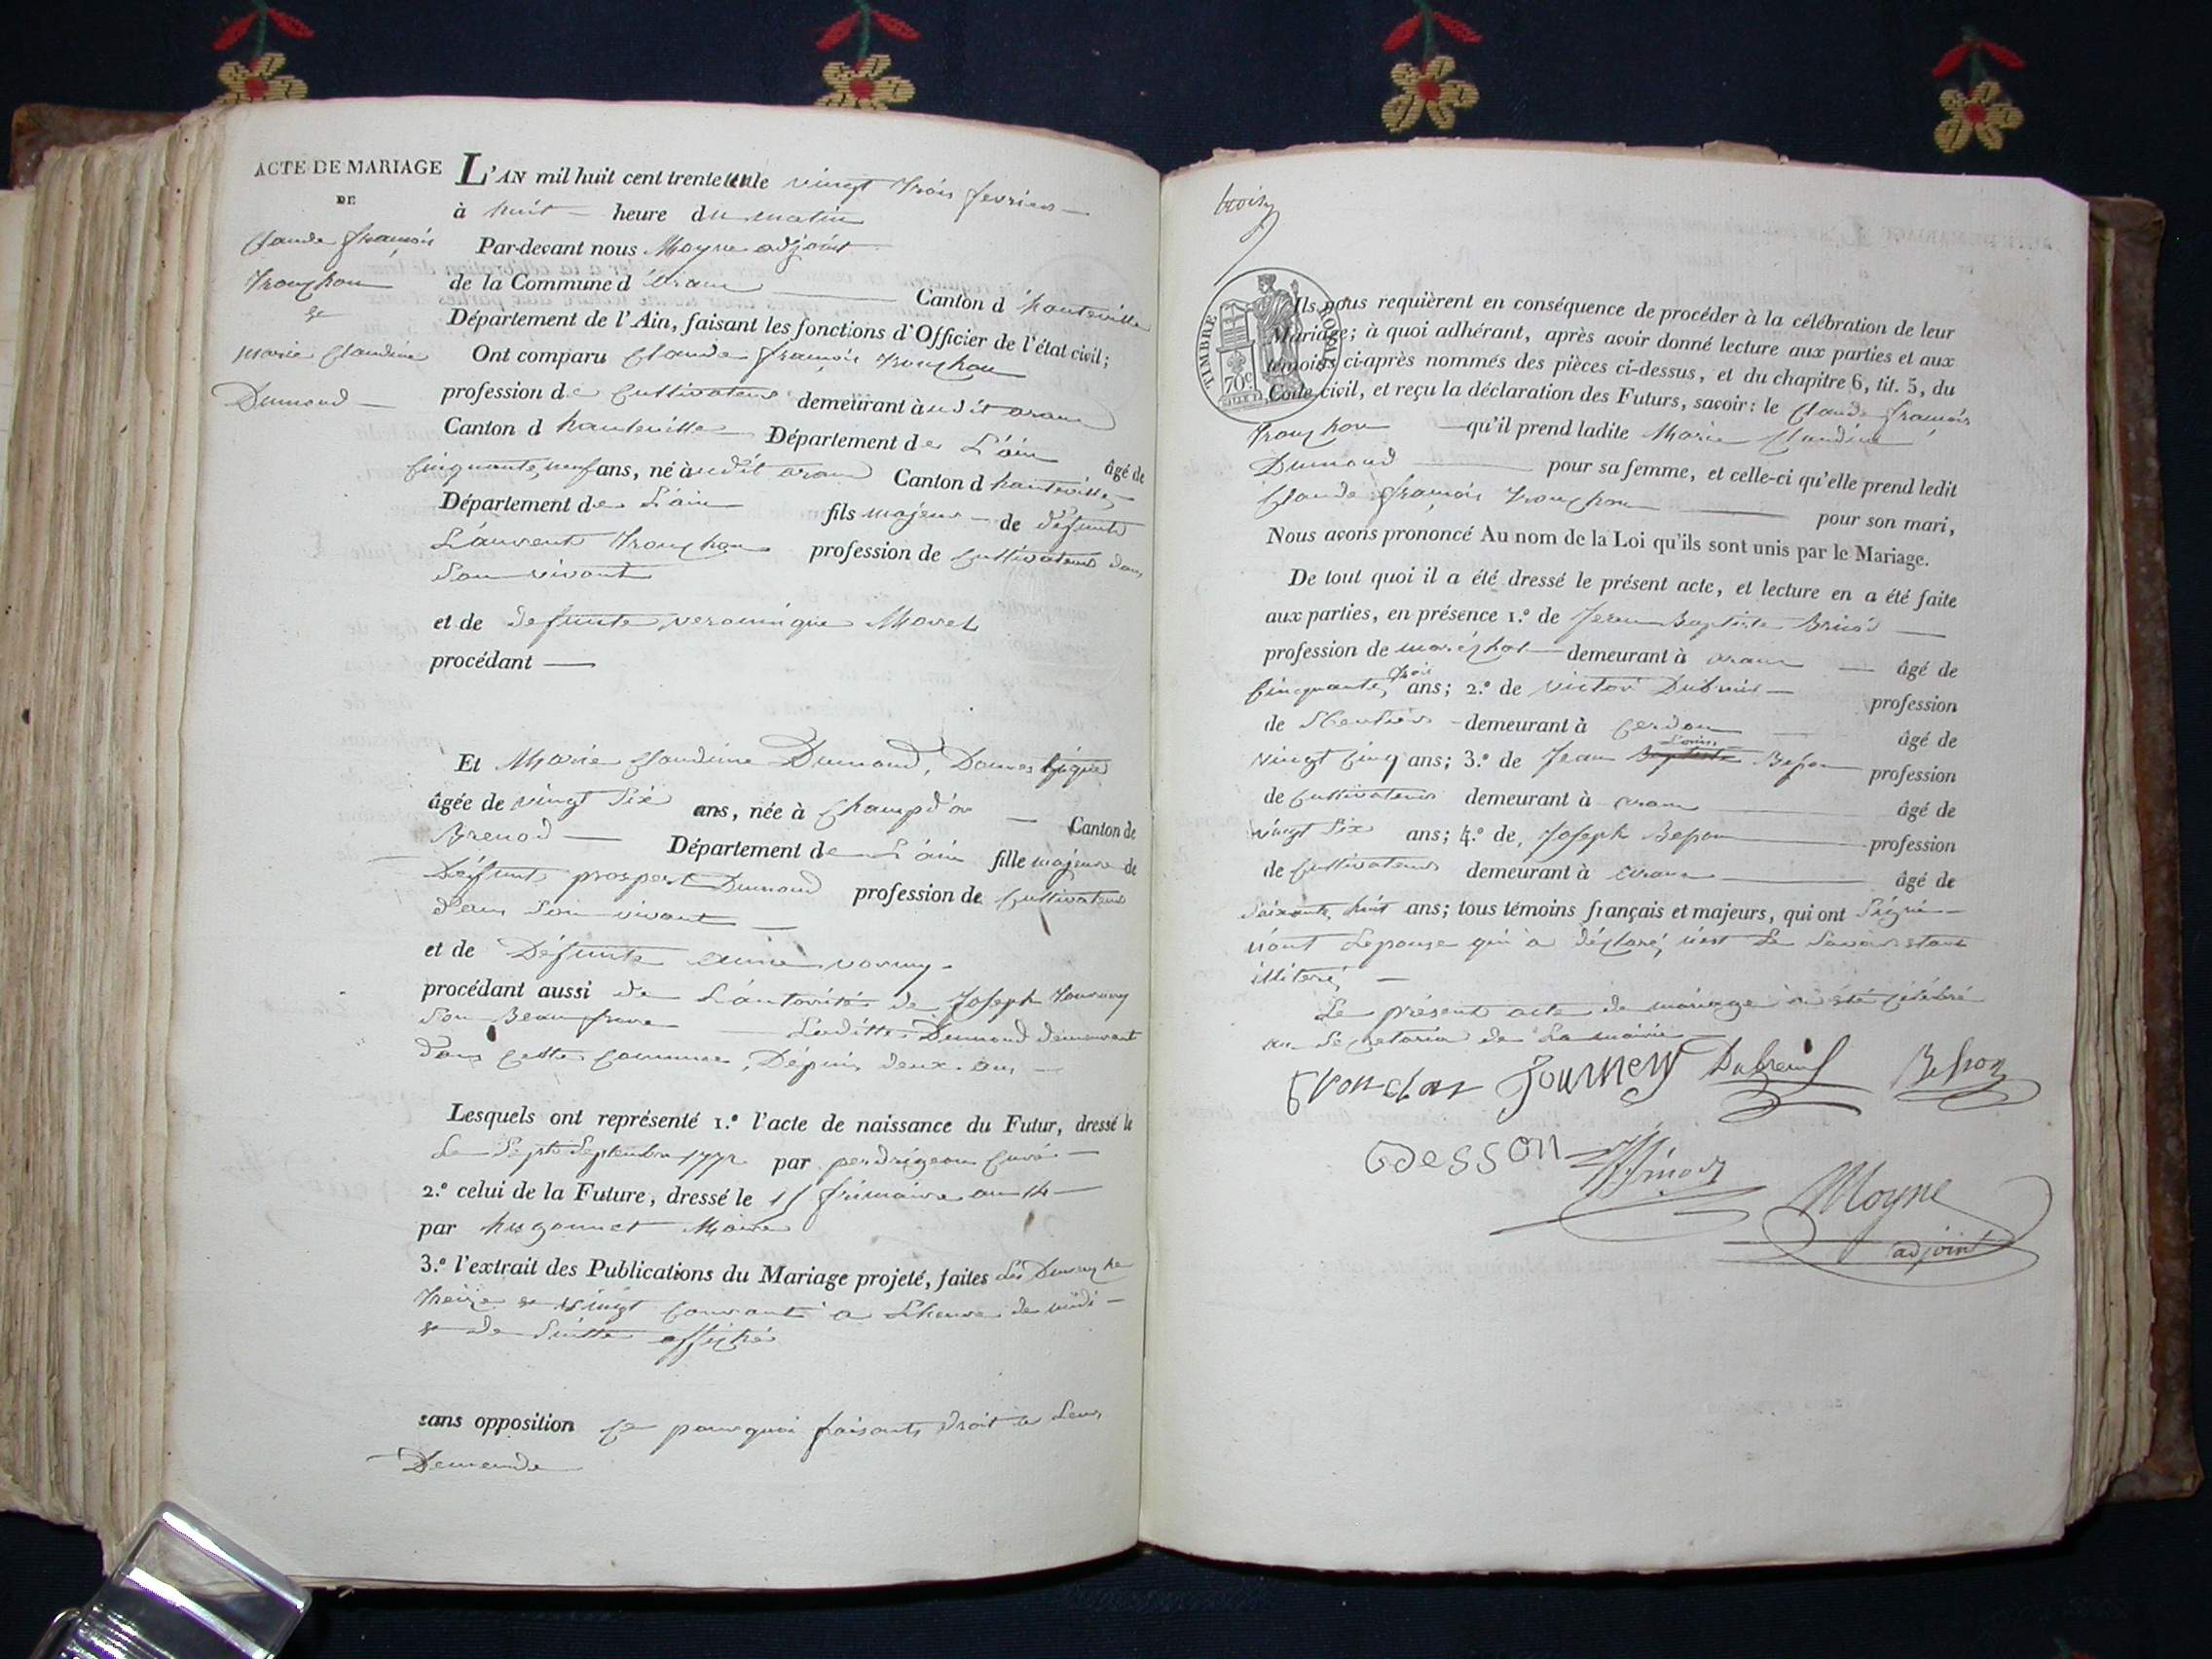 ACTE DE MARIAGE
DE
Claude françois
Tronchon
et
Marie Claudine
Dumond
L'AN mil huit cent trente le vingt trois fevrier
à huit heure du matin
Par-devant nous Moyne adjoint
de la Commune d'aranc Canton d'hauteville
Département de l'Ain, faisant les fonctions d'Officier de l'état civil;
Ont comparu Claude françois Tronchon
profession de Cultivateur demeurant à udit aranc
Canton d hauteville Département de L'ain âgé de
Cinquante neuf ans, né à udit aranc Canton d hauteville
Département de L'ain fils majeur de défunt
Laurent Tronchon profession de Cultivateur dans
Son vivant
et de defunte veronique Morel
procédant
Et Marie Claudine Dumond,
âgée de vingt Six ans, née à Champd'or Canton de
Brenod Département de L'ain fille majeure de
Défunt prospert Dumond profession de Cultivateur
dans Son vivant
et de Défunte
procédant aussi de L'autorité de Joseph
Son Beau frere Laditte Dumond demeurant
dans Cette Commune, Dépuis deux ans
Lesquels ont représenté 1.º l'acte de naissance du Futur, dressé le
Le Sept Septembre 1772 par perdrigeon Curé
2.º celui de la Future, dressé le 15 frimaire an 14
par hugonnet Maire
3.º l'extrait des Publications du Mariage projeté, faites Les Dimanche
treize et vingt Courant a L'heure de midi
et de Suitte affiché
sans opposition Ce pourquoi faisant droit à Leur
Demande
trois
TIMBRE ROYAL
70c
Ils nous requièrent en conséquence de procéder à la célébration de leur
Mariage; à quoi adhérant, après avoir donné lecture aux parties et aux
témoins ci-après nommés des pièces ci-dessus, et du chapitre 6, tit. 5, du
Code civil, et reçu la déclaration des Futurs, savoir: le Claude françois
Tronchon qu'il prend ladite Marie Claudine
Dumond pour sa femme, et celle-ci qu'elle prend ledit
Claude françois Tronchon pour son mari,
Nous avons prononcé Au nom de la Loi qu'ils sont unis par le Mariage.
De tout quoi il a été dressé le présent acte, et lecture en a été faite
aux parties, en présence 1.º de Jean Baptiste
profession de maréchal demeurant à aranc âgé de
Cinquante trois ans; 2.º de victor Dubreuil profession
de demeurant à Cerdon âgé de
vingt Cinq ans; 3.º de Jean Baptiste Louis Besson profession
de Cultivateur demeurant à aranc âgé de
vingt Six ans; 4.º de Joseph Besson profession
de Cultivateur demeurant à aranc âgé de
Soixante huit ans; tous témoins français et majeurs, qui ont Signé
non Lepouse qui a déclaré ne Le Savoir étant
illiteré
Le présent acte de mariage a été Célébré
au Secretaria de La mairie
Tronchon Journery Dubreuil Besson
Besson
Moyne
adjoint